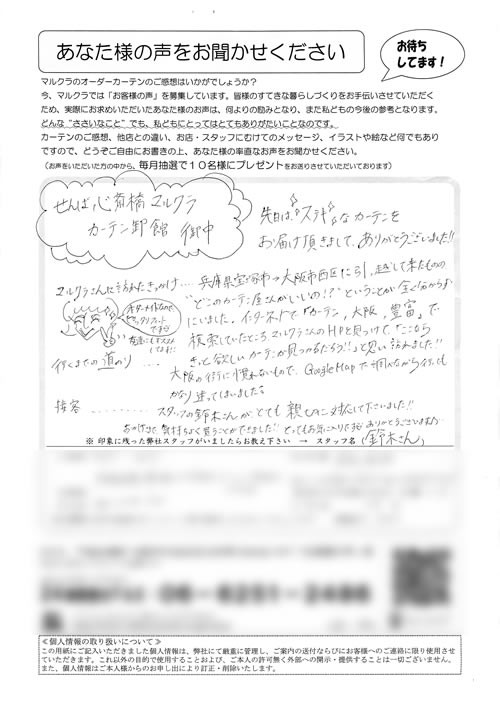 あなた様の声をお聞かせください
お待ち
してます!
マルクラのオーダーカーテンのご感想はいかがでしょうか?
今、マルクラでは「お客様の声」を募集しています。皆様のすてきな暮らしづくりをお手伝いさせていただく
ため、実際にお求めいただいたあなた様のお声は、何よりの励みとなり、また私どもの今後の参考となります。
どんな“ささいなこと”でも、私どもにとってはとてもありがたいことなのです。
カーテンのご感想、他店との違い、お店・スタッフにむけてのメッセージ、イラストや絵など何でもあり
ますので、どうぞご自由にお書きの上、あなた様の率直なお声をお聞かせください。
(お声をいただいた方の中から、毎月抽選で10名様にプレゼントをお送りさせていただいております)
せんば心斎橋マルクラ
カーテン卸館 御中
先日は、“ステキ”なカーテンを
お届け頂きまして、ありがとうございました!!
マルクラさんに訪れたきっかけ… 兵庫県宝塚市→大阪市西区に引っ越して来たものの
“どこのカーテン屋さんがいいの!?”ということが全く分からず
にいました。インターネットで「カーテン,大阪,豊富」で
検索していたところマルクラさんのHPを見つけて、「ここなら
きっと欲しいカーテンが見つかるだろう!!」と思い訪れました!!
オーダーメイドなので
ピッタリフィット
です
行くまでの道のり … 大阪の街に慣れないもので、Google Mapで調べながら行っても
かなり迷ってしまいました。
接客 … スタッフの鈴木さんがとても親切に対応して下さいました!!
おかげさまで、気持ちよく買うことができました!! とってもお気に入りです ありがとうございます
※ 印象に残った弊社スタッフがいましたらお教え下さい → スタッフ名 (鈴木さん)
≪個人情報の取り扱いについて≫
この用紙にご記入いただきました個人情報は、弊社にて厳重に管理し、ご案内の送付ならびにお客様へのご連絡に限り使用させ
ていただきます。これ以外の目的で使用することおよび、ご本人の許可無く外部への開示・提供することは一切ございません。
また、個人情報はご本人様からのお申し出により訂正・削除いたします。